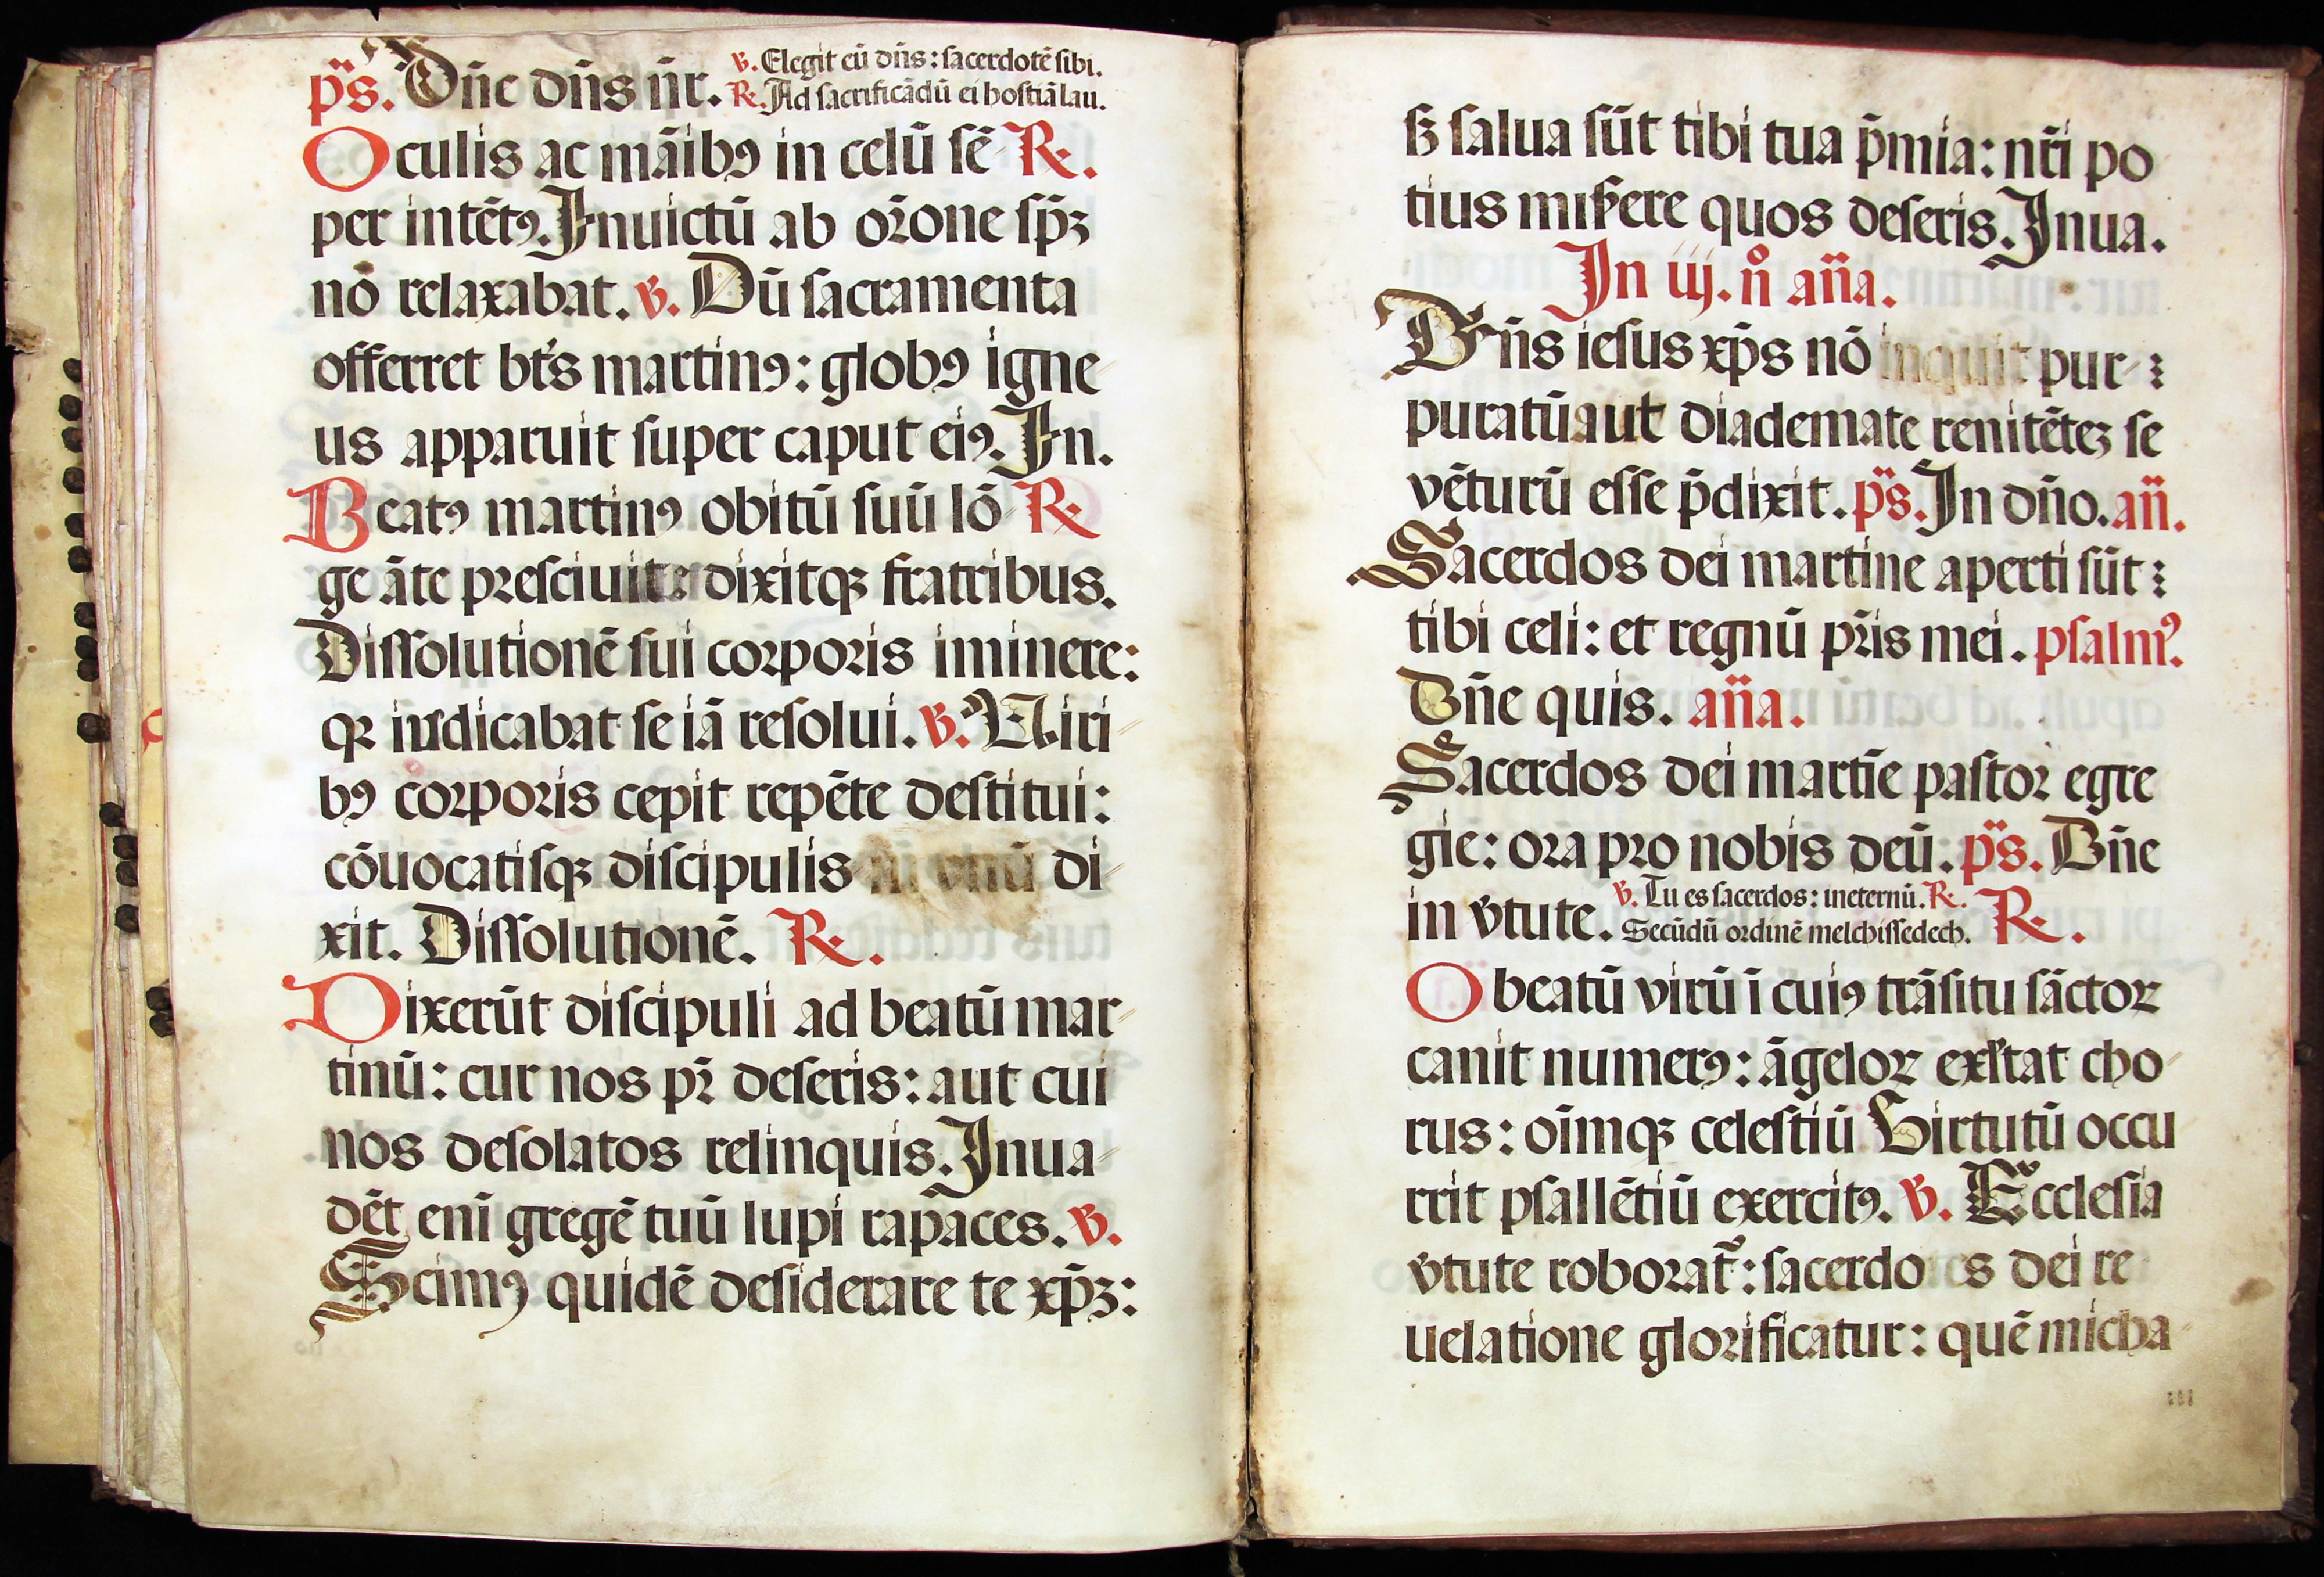 ps. Dn̄e dn̄s nr̄. ℣. Elegit eū dn̄s: sacerdotē sibi.
℟. Ad sacrificādū ei hostiā lau.
Oculis ac māibꝰ in celū sē ℟.
per intētꝰ. Inuictū ab or̄one sp̄ꝫ
nō relaxabat. ℣. Dū sacramenta
offerret bt̄s martinꝰ: globꝰ igne
us apparuit super caput eiꝰ. In.
Beatꝰ martinꝰ obitū suū lō ℟
ge āte presciuit: dixitqꝫ fratribus.
Dissolutionē sui corporis iminere:
qꝛ iudicabat se iā resolui. ℣. Uiri
bꝰ corporis cepit repēte destitui:
cōuocatisqꝫ discipulis in vnū di
xit. Dissolutionē. ℟.
Dixerūt discipuli ad beatū mar
tinū: cur nos pr̄ deseris: aut cui
nos desolatos relinquis. Inua
dēt enī gregē tuū lupi rapaces. ℣.
Scimꝰ quidē desiderare te xp̄ꝫ:
sꝫ salua sūt tibi tua p̄mia: nr̄i po
tius miserere quos deseris. Inua.
In iij. n̊ an̄a.
Dn̄s iesus xp̄s nō inquit pur
puratū aut diademate renitētēꝫ se
vēturū esse p̄dixit. ps. In dn̄o. an̄.
Sacerdos dei martine aperti sūt
tibi celi: et regnū pr̄is mei. psalmꝰ.
Dn̄e quis. an̄a.
Sacerdos dei martīe pastor egre
gie: ora pro nobis deū. ps. Dn̄e
in v̄tute. ℣. Tu es sacerdos: ineternū. ℟.
Secūdū ordinē melchissedech. ℟.
O beatū virū ī cuiꝰ trāsitu sāctoꝝ
canit numerꝰ: āgeloꝝ exltat cho
rus: oīmqꝫ celestiū Virtutū occu
rrit psallētiū exercitꝰ. ℣. Ecclesia
v̄tute roborat̄: sacerdotes dei re
uelatione glorificatur: quē micha